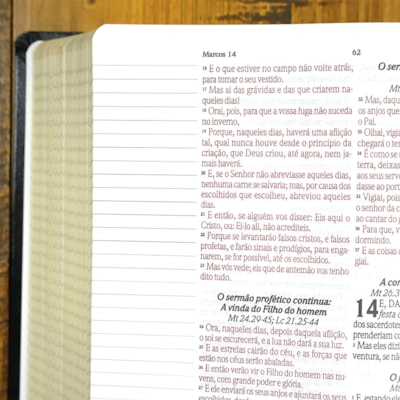 Marcos 14
16 E o que estiver no campo não volte atrás,
para tomar o seu vestido.
17 Mas ai das grávidas e das que criarem na-
queles dias!
18 Orai, pois, para que a vossa fuga não suceda
no inverno,
19 Porque, naqueles dias, haverá uma aflição
tal, qual nunca houve desde o princípio da
criação, que Deus criou, até agora, nem ja-
mais haverá.
20 E, se o Senhor não abreviasse aqueles dias,
nenhuma carne se salvaria; mas, por causa dos
escolhidos que escolheu, abreviou aqueles
dias.
21 E então, se alguém vos disser: Eis aqui o
Cristo, ou: Ei-lo ali, não acrediteis.
22 Porque se levantarão falsos cristos, e falsos
profetas, e farão sinais e prodígios, para enga-
narem, se for possível, até os escolhidos.
23 Mas vós vede; eis que de antemão vos tenho
dito tudo.
O sermão profético continua:
A vinda do Filho do homem
Mt 24.29-45; Lc 21.25-44
24 Ora, naqueles dias, depois daquela aflição,
o sol se escurecerá, e a lua não dará a sua luz.
25 E as estrelas cairão do céu, e as forças que
estão nos céus serão abaladas.
26 E então verão vir o Filho do homem nas nu-
vens, com grande poder e glória.
27 E ele enviará os seus anjos e ajuntará os seus
62
O ser
Mt
32 Mas, daqu
os anjos que
o Pai.
33 Olhai, vigia
chegará o ter
34 É como se
terra, deixas
aos seus serv
dasse ao port
35 Vigiai, pois
o senhor da c
ao cantar do g
36 Para que, v
dormindo.
37 E as coisas
gial.
A con
Mt 26.3
14 E, DA
festa d
dos sacerdotes
prenderiam co
2 Mas eles dizi
ventura, se não
O j